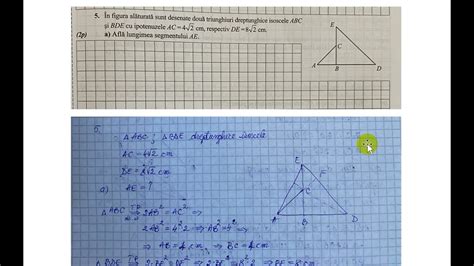 5. În figura alăturată sunt desenate două triunghiuri dreptunghice isoscele ABC
și BDE cu ipotenuzele AC=4√2 cm, respectiv DE=8√2 cm.
(2p) a) Află lungimea segmentului AE.
E
C
A B D
5.
Δ ABC, Δ BDE dreptunghice isoscele
AC = 4√2 cm
DE = 8√2 cm
a) AE = ?
E
C
A B D
Δ ABC ⇒ 2AB² = AC² ⇒
2AB² = 4²·2 ⇒ AB² = 4² ⇒
⇒ AB = 4 cm ⇒ BC = 4 cm
Δ BDE